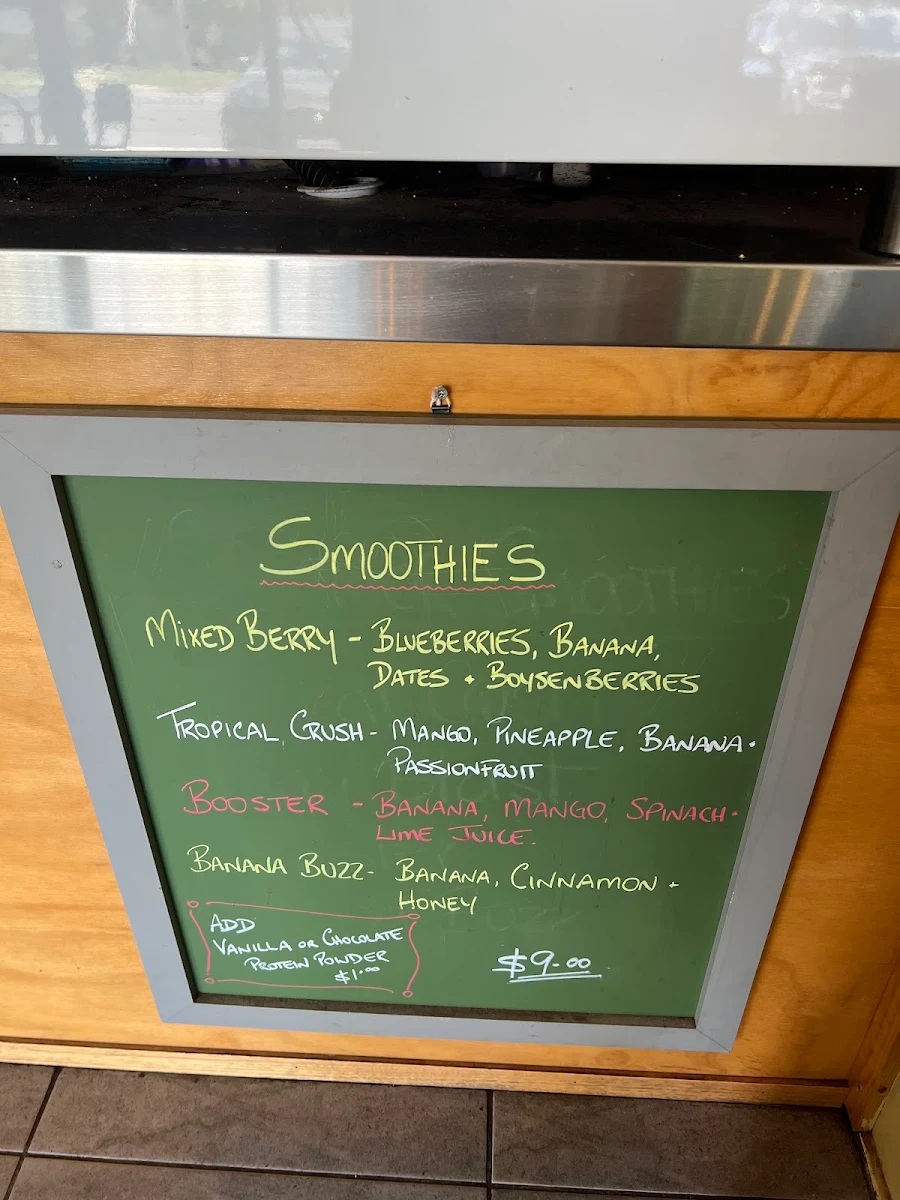 SMOOTHIES
MIXED BERRY - BLUEBERRIES, BANANA,
DATES + BOYSENBERRIES
TROPICAL CRUSH - MANGO, PINEAPPLE, BANANA +
PASSIONFRUIT
BOOSTER - BANANA, MANGO, SPINACH +
LIME JUICE.
BANANA BUZZ - BANANA, CINNAMON +
HONEY
ADD
VANILLA OR CHOCOLATE
PROTEIN POWDER
$1.00
$9.00